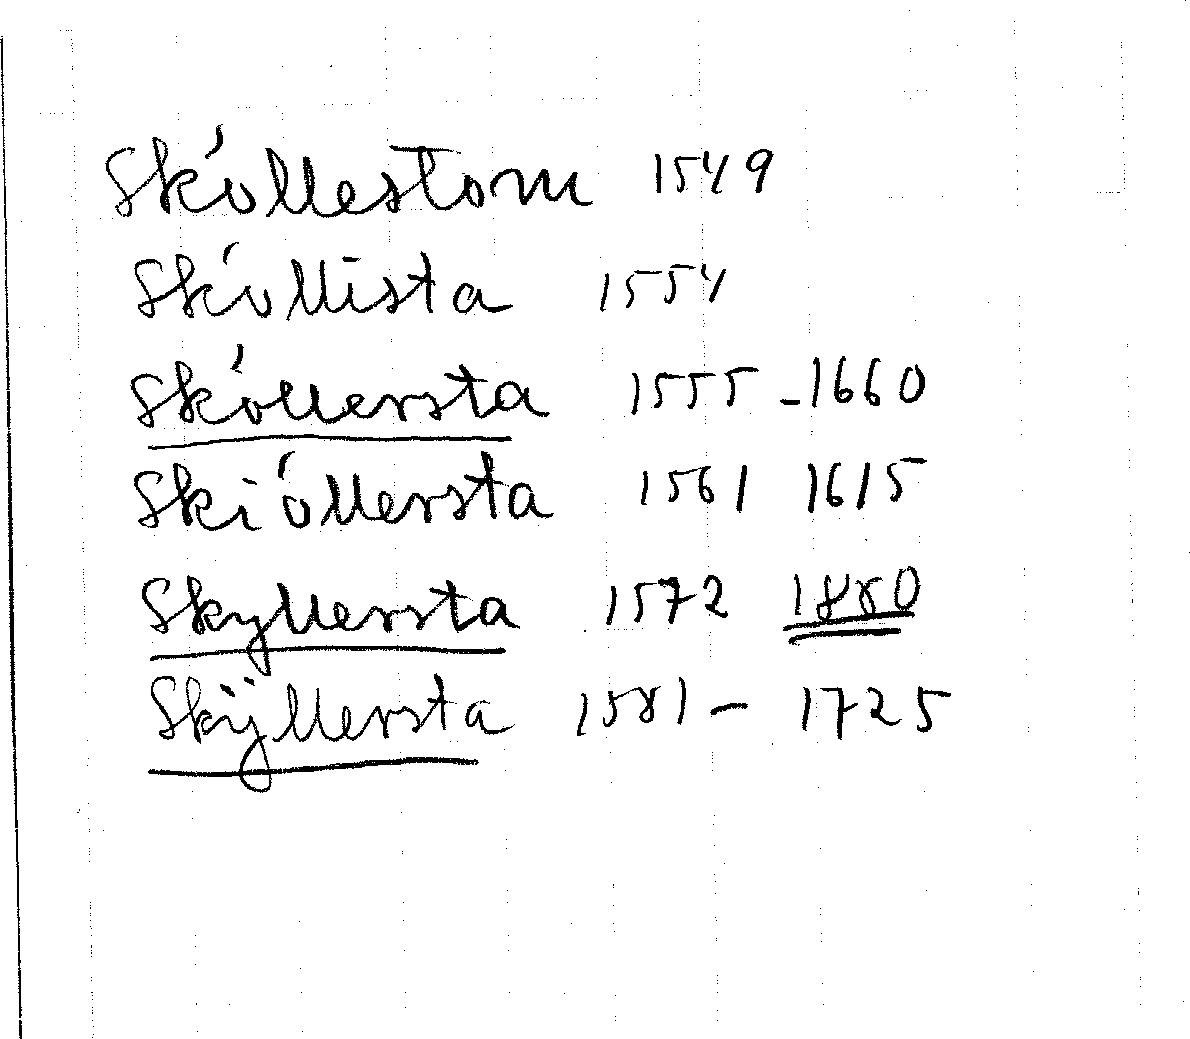 Skóllestom 1549
Skóllista 1554
Skóllersta 1555 - 1660
Skióllersta 1561 1615
Skyllersta 1572 1880
Skÿllersta 1581 - 1725